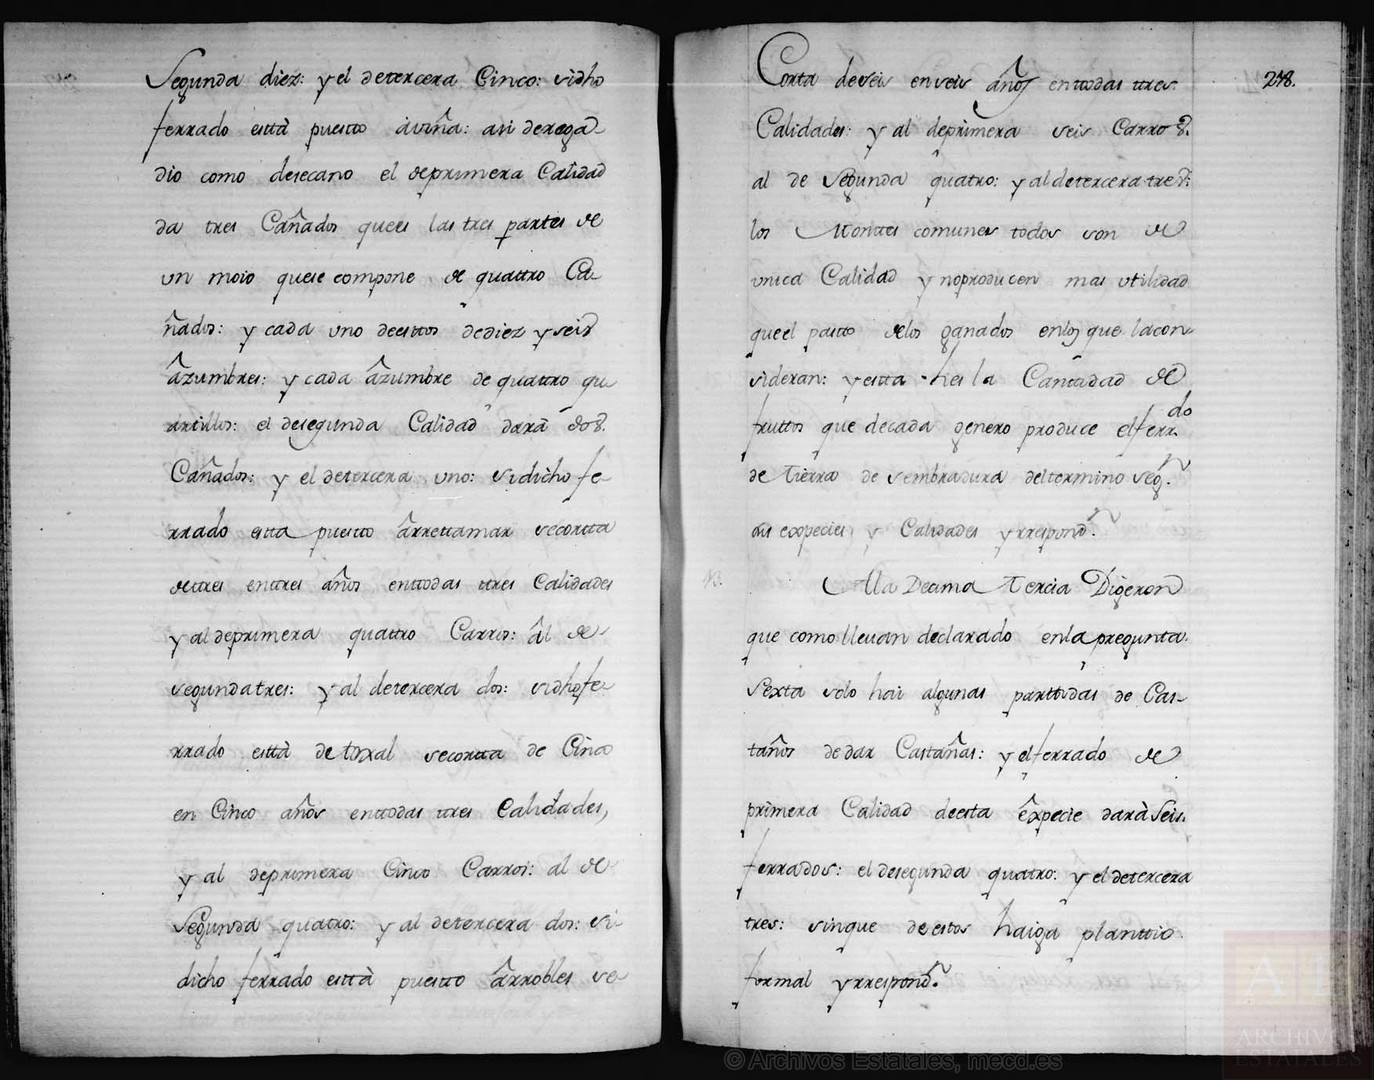 Segunda diez: y el detercera Cinco: sidho
ferrado està puesto àviña: asi deregà
dio como desecano el deprimera Calidad
da tres Cañados quees las tres partes de
un moio quese compone de quattro Ca
ñados: y cada uno deestos dediez y seis
âzumbres: y cada âzumbre de quattro qu
artillos: el desegunda Calidad darà dos.
Cañados: y el detercera uno: sidicho fe-
rrado esta puesto ârrettamar secortta
detres entres años enttodas tres Calidades
y al deprimera quattro Carros: âl de
segundatres: y al detercera dos: sidhofe-
rrado està de toxal secortta de Cinco
en Cinco años enttodas tres Calidades,
y al deprimera Cinco Carros: al de
Segunda quatro: y al detercera dos: si
dicho ferrado està puestto ârrobles se
278.
Corta deseis enseis años enttodas tres
Calidades: y al deprimera seis Carros.
al de Segunda quatro: y al detercera tres:
los Montes comunes todos son de
unica Calidad y noproducen mas utilidad
queel pasto delos ganados enlos que lacon
sideran: y esta es la Cantidad de
fruttos que decada genero produce elferr.do
de tierra de sembradura deltermino seg.n
sus expecies y Calidades yrrespond.n
13.
Ala Decima Tercia Digeron
que como llevan declarado enla pregunta
Sexta solo hai algunas parttidas de Cas-
taños dedar Castañas: y elferrado de
primera Calidad deesta êxpecie darà Seis
ferrados: el desegunda quatro: y el detercera
tres: sinque deestos haiga planttio
formal yrrespond.n
© Archivos Estatales, mecd.es
ARCHIVOS
ESTATALES